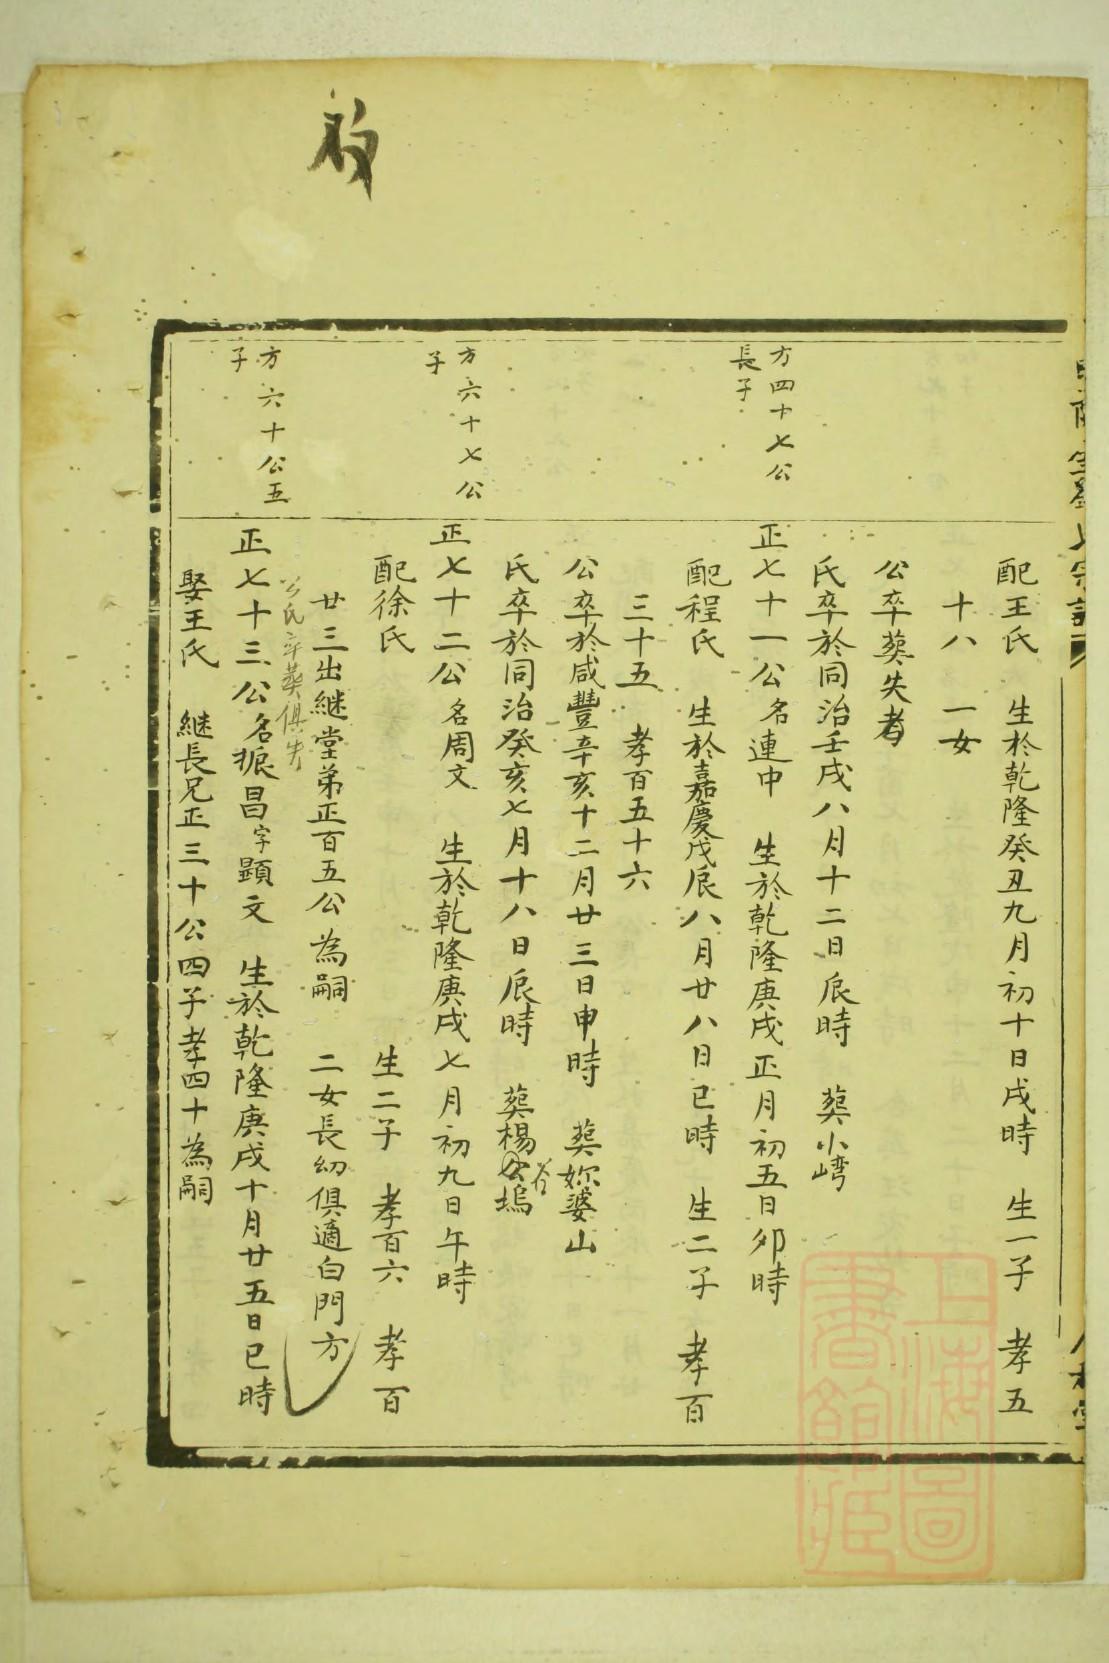 配王氏 生於乾隆癸丑九月初十日戌時 生一子 孝五
十八 一女
公卒葬失考
氏卒於同治壬戌八月十二日辰時 葬小嶹
方四十七公
長子
正七十一公名連中 生於乾隆庚戌正月初五日卯時
配程氏 生於嘉慶戊辰八月廿八日巳時 生二子 孝百
三十五 孝百五十六
公卒於咸豐辛亥十二月廿三日申時 葬妳婆山
氏卒於同治癸亥七月十八日辰時 葬楊谷塢
方六十七公
子
正七十二公名周文 生於乾隆庚戌七月初九日午時
配徐氏 生二子 孝百六 孝百
廿三出継堂弟正百五公為嗣 二女長幼俱適白門方
公氏卒葬俱失
方六十公五
子
正七十三公名振昌字顕文 生於乾隆庚戌十月廿五日巳時
娶王氏 継長兄正三十公四子孝四十為嗣
上海圖書館藏